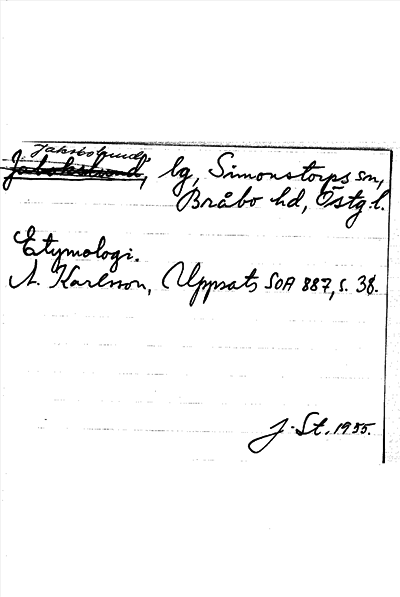 lg, Simonstorps sn,
Bråbo hd, Östg.l.
Etymologi.
A. Karlsson, Uppsats SOA 887, s. 38.
J. St. 1955.